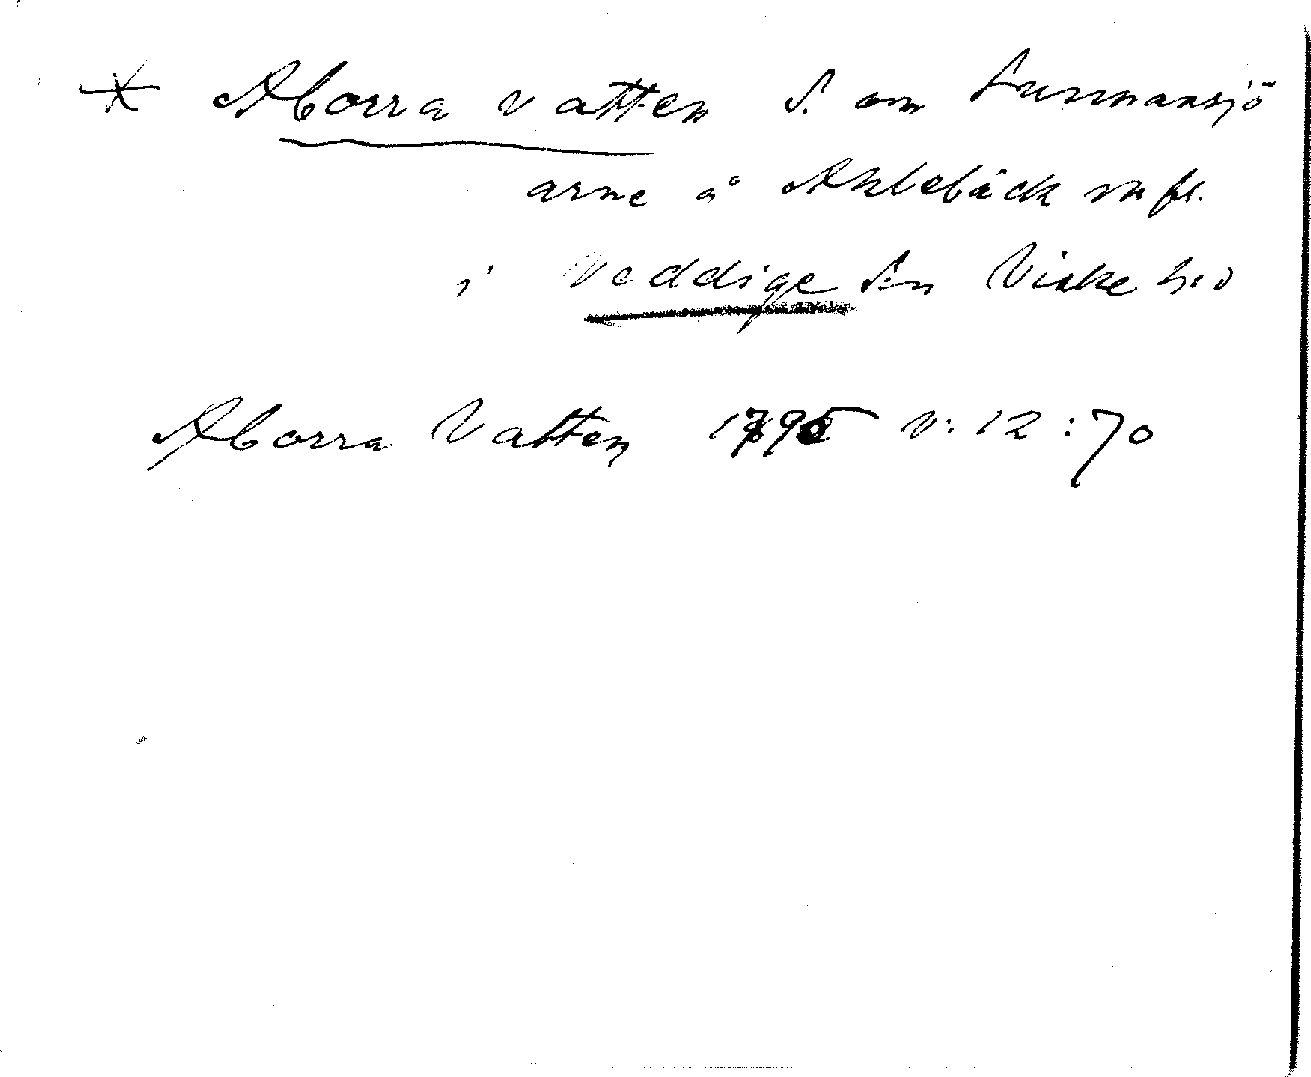 * Aborra vatten S. om Furmansjö
arne å Ahlebäck m fl.
i Veddige Sn Viske hd
Aborra Vatten 1795 V: 12 : 70